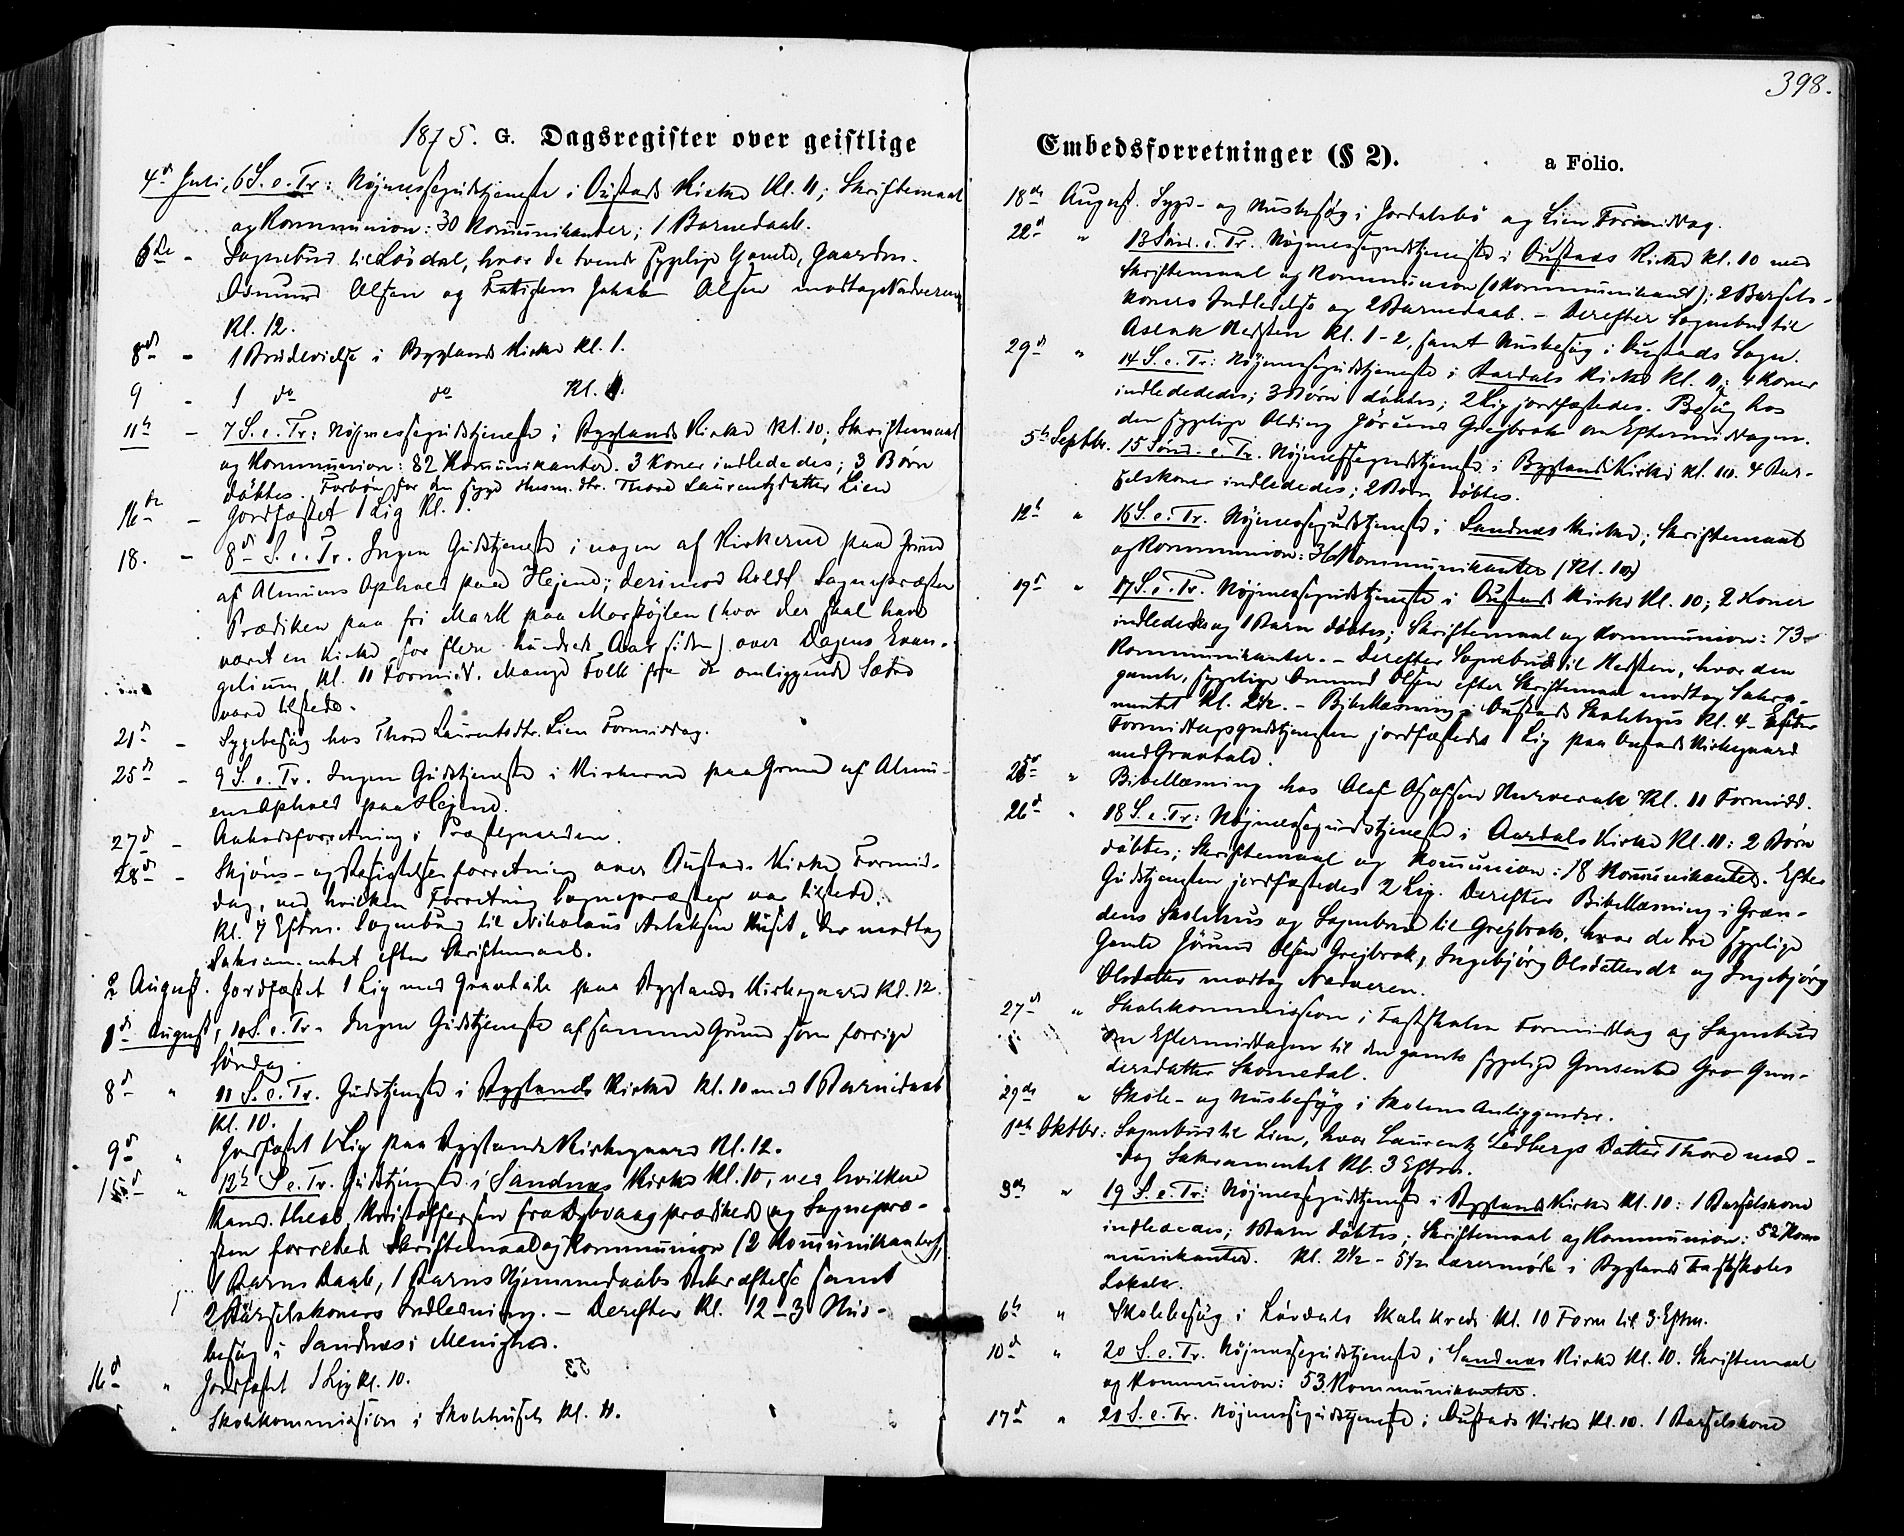 1875. G. Dagsregister over geistlige
4de Juli, 6 S. e. Tr: Højmessegudstjeneste i Austads Kirke Kl. 11; Skriftemaal
og Kommunion: 30 Kommunikanter; 1 Barnedaab.
6te - Sognebud til Løvdal, hvor de tvende sygelige Gamle, Gaardm.
Osmund Olsen og Jakob Olsen modtog Nadveren
Kl. 12.
8de - 1 Brudevielse i Byglands Kirke Kl. 1.
9 - 1 do do Kl. 1.
11te - 7 S. e. Tr: Højmessegudstjeneste i Byglands Kirke Kl. 10; Skriftemaal
og Kommunion: 82 Kommunikanter. 3 Koner indlededes; 3 Børn
døbtes. Forbøn for den syge Husm. dtr. Thore Laurentzdatter Lien
16de - Jordfæstet 1 Lig Kl. 1.
18. - 8de S. e. Tr. Ingen Gudstjeneste i nogen af Kirkerne paa Grund
af Almuens Ophold paa Hejene; derimod holdt Sognepræsten
Prædiken paa fri Mark paa (hvor der skal have
været en Kirke for flere hundrede Aar siden) over Dagens Evan-
gelium Kl. 11 Formid. Mange Folk fra de omliggende Sætre
vare tilstede.
21de - Sygebesøg hos Thore Laurentsdtr. Lien Formiddag.
25de - 9 S. e. Tr. Ingen Gudstjeneste i Kirkerne paa Grund af Almu-
ens Ophold paa Hejene.
27de - Aabodsforretning i Præstegaarden.
28de - Skjøns- og Besigtelsesforretning over Austads Kirke Formid-
dag, ved hvilken Forretning Sognepræsten var tilstede.
Kl. 7 Eftm. Sognebud til Nikolaus Aslaksen, der modtog
Sakramentet efter Skriftemaal.
2 August. Jordfæstet 1 Lig med Gravtale paa Byglands Kirkegaard Kl. 12.
1ste August, 10 S. e. Tr. Ingen Gudstjeneste af samme Grund som forrige
Søndag.
8de " 11 S. e. Tr. Gudstjeneste i Byglands Kirke Kl. 10 med 1 Barnedaab
Kl. 10.
9de " Jordfæstet 1 Lig paa Byglands Kirkegaard Kl. 12.
15de " 12te S. e. Tr. Gudstjeneste i Sandnes Kirke Kl. 10, ved hvilken
Kand. theol. Kristoffersen fra Dybvaag prædikede og Sognepræ-
sten forrettede Skriftemaal og Kommunion (2 Kommunikanter),
1 Barns Daab, 1 Barns Hjemmedaabs Bekræftelse samt
2 Barselskoners Indledning. - Derefter Kl. 12-3 Hus-
besøg i Sandnes Menighed.
16de " Jordfæstet 1 Lig Kl. 10.
" Skolekommission i Skolehuset Kl. 11.
398.
Embedsforretninger (§ 2). a Folio.
18de August. Syge- og Husbesøg i Jordalsbø og Lien Formiddag.
22de " 13 Sønd. e. Tr. Højmessegudstjeneste i Austads Kirke Kl. 10 med
Skriftemaal og Kommunion (1 Kommunikant); 2 Barsels-
koners Indledelse og 2 Barnedaab. - Derefter Sognebud til
Aslak Kl. 1-2, samt Husbesøg i Austads Sogn.
29de " 14 S. e. Tr: Højmessegudstjeneste i Aardals Kirke Kl. 11: 4 Koner
indlededes; 3 Børn døbtes; 2 Lig jordfæstedes. Besøg hos
den sygelige Olding Jørund Grejbrok om Eftermiddagen.
5te Septbr. 15 Sønd. e. Tr. Højmessegudstjeneste i Byglands Kirke Kl. 10. 4 Bar-
selskoner indlededes; 2 Børn døbtes.
12te " 16 S. e. Tr. Højmessegudstjeneste i Sandnes Kirke; Skriftemaal
og Kommunion: Kommunikanter (Kl. 10)
19de " 17 S. e. Tr. Højmessegudstjeneste i Austads Kirke Kl. 10; 2 Koner
indlededes og 1 Barn døbtes; Skriftemaal og Kommunion: 73
Kommunikanter. - Derefter Sognebud til, hvor den
gamle, sygelige Omund Olsen efter Skriftemaal modtog Sakra-
mentet Kl. 2½. - Bibellæsning i Austads Skolehus Kl. 4. - Efter
Formiddagsgudstjenesten jordfæstedes 1 Lig paa Austads Kirkegaard
med Gravtale.
25de " Bibellæsning hos Olaf Kl. 11 Formidd.
26de " 18 S. e. Tr: Højmessegudstjeneste i Aardals Kirke Kl. 11: 2 Børn
døbtes; Skriftemaal og Kommunion: 18 Kommunikanter. Efter
Gudstjenesten jordfæstedes 2 Lig. Derefter Bibellæsning i Græn-
dens Skolehus og Sognebud til Grejbrok, hvor de tre sygelige
Gamle Jørund Olsen Grejbrok, Ingebjørg Olsdatter og Ingebjørg
Olsdatter modtog Nadveren.
27de " Skolekommission i Fastskolen Formiddag og Sognebud
om Eftermiddagen til den gamle sygelige Gro Gun-
dersdatter Skomedal.
29de " Skole- og Husbesøg i Skolens Anliggender.
1ste Oktbr: Sognebud til Lien, hvor Laurentz Lidbergs Datter Thore mod-
tog Sakramentet Kl. 3 Eftm.
3de " 19 S. e. Tr: Højmessegudstjeneste i Byglands Kirke Kl. 10: 1 Barselskone
indlededes; 1 Barn døbtes; Skriftemaal og Kommunion: 52 Kom-
munikanter. Kl. 2½ - 5½ Lærermøde i Byglands Fastskoles
Lokale.
6te " Skolebesøg i Løvdals Skolekreds Kl. 10 Form til 3 Eftm.
10de " 20 S. e. Tr. Højmessegudstjeneste i Sandnes Kirke Kl. 10. Skriftemaal
og Kommunion: 53 Kommunikanter.
17de " 21 S. e. Tr. Højmessegudstjeneste i Austads Kirke Kl. 10. 1 Barselskone